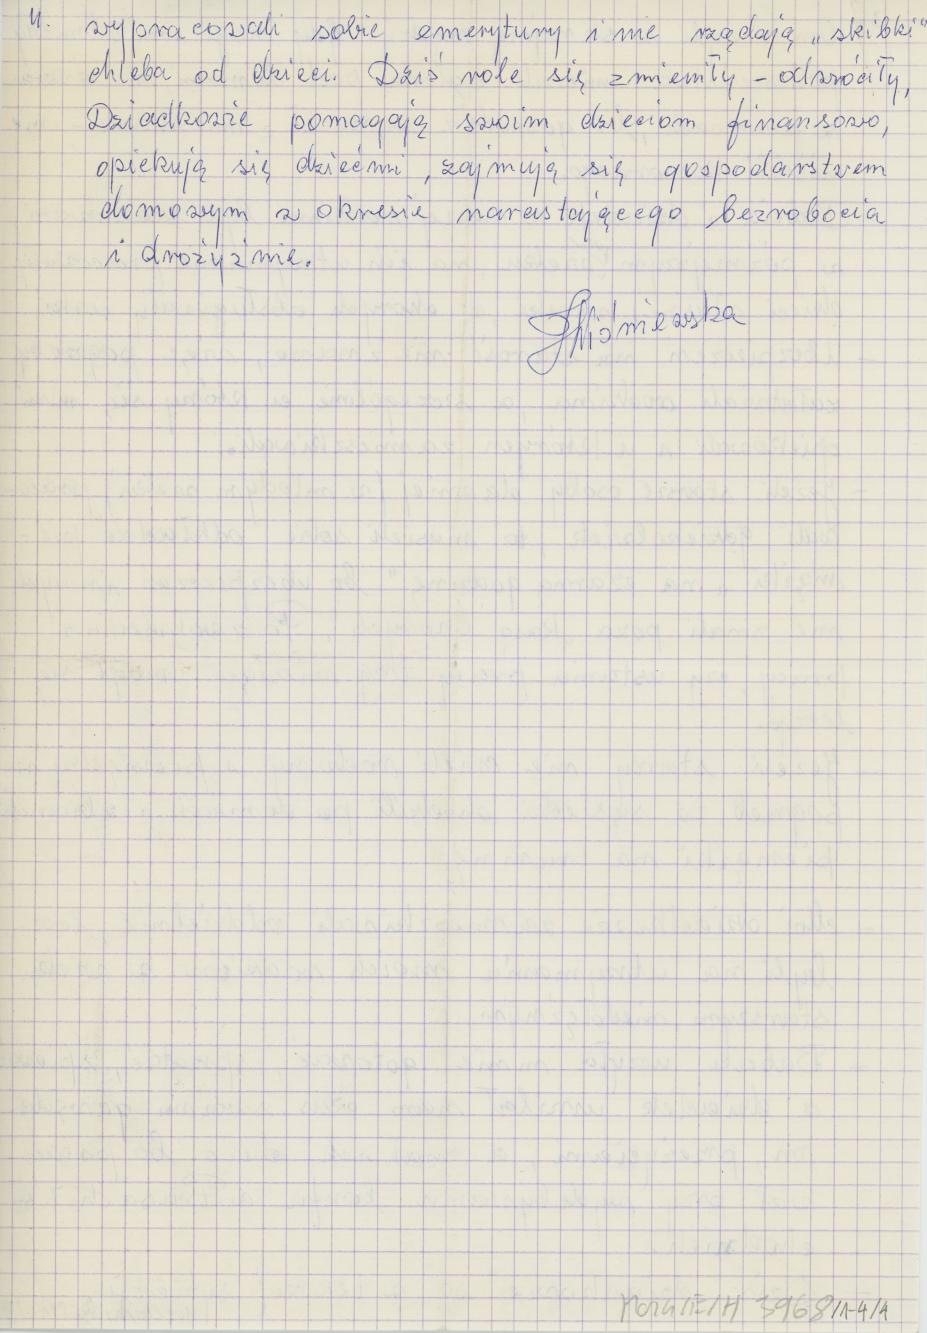 4. wypracowali sobie emerytury i nie rządają „skibki"
chleba od dzieci. Dziś role się zmieniły - odwróciły,
Dziadkowie pomagają swoim dzieciom finansowo,
opiekują się dziećmi, zajmują się gospodarstwem
domowym w okresie narastającego bezrobocia
i drożyźnie.
3968/1-4/4